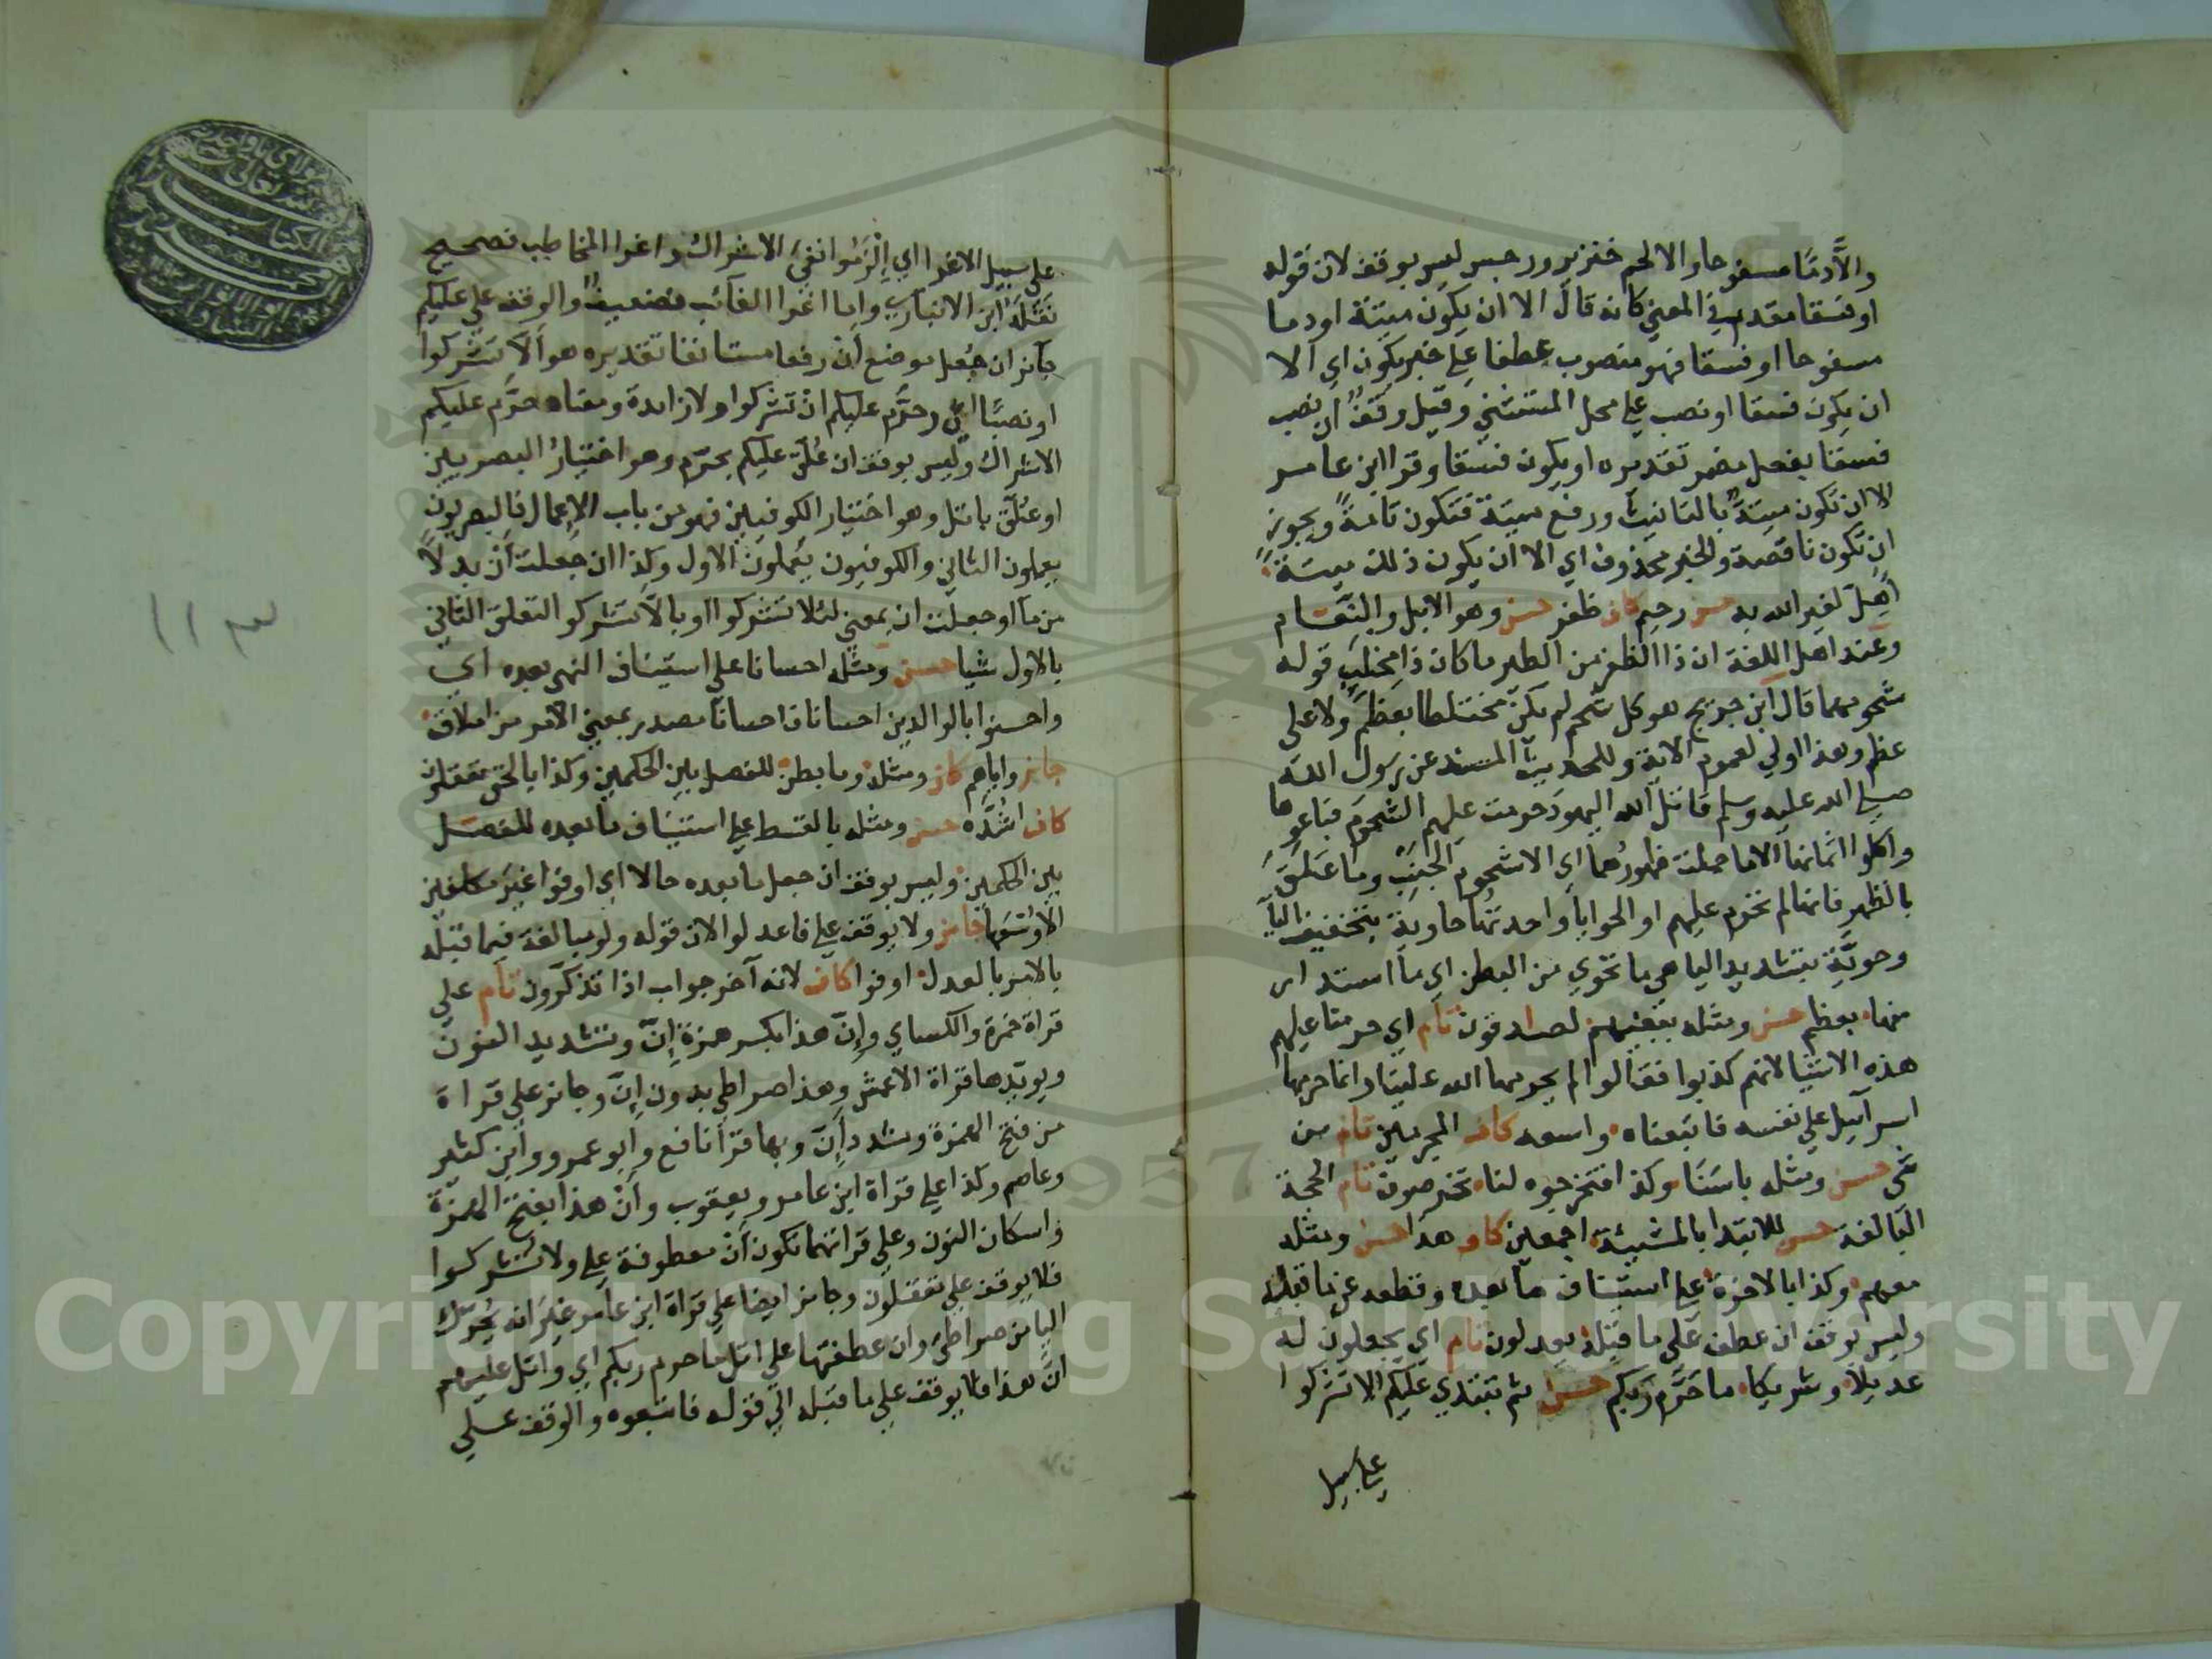 والا دما مسفوحا والا لحم خنزير ورجس ليس بوقف لان قوله
او فسقا مقدم في المعني كانه قال الا ان يكون ميتة او دما
مسفوحا او فسقا فهو منصوب عطفا علي خبر يكون اي الا
ان يكون فسقا او نصب علي محل المستثني وقيل وقف ان نصب
فسقا بفعل مضمر تقديره او يكون فسقا وقرا ابن عامر
الا ان تكون ميتة بالتانيث ورفع ميتة فتكون تامة ويجوز
ان تكون ناقصة والخبر محذوف اي الا ان يكون ذلك ميتة
اهل لغير الله به حسن رحيم كاف ظفر حسن وهو الابل والنعام
وعند اهل اللغة ان ذا الظفر من الطير ما كان ذا مخلب قوله
شحومهما قال ابن جريج هو كل شحم لم يكن مختلطا بعظم ولا علي
عظم وهذا اولي لعموم الاية وللحديث المسند عن رسول الله
صلي الله عليه وسلم قاتل الله اليهود حرمت عليهم الشحوم فباعوها
واكلوا اثمانها الا ما حملت ظهورهما اي الا شحوم الجنب وما علق
بالظهر فانها لم تحرم عليهم او الحوايا واحدتها حاوية بتخفيف اليا
وحوية بتشديد اليا هي ما تحوي من البطن اي ما استدار
منها بعظم حسن ومثله ببغيهم لصادقون تام اي حرمنا عليهم
هذه الاشيا لانهم كذبوا فقالوا لم يحرمها الله علينا وانما حرمها
اسرآئيل علي نفسه فاتبعناه واسعه كاف المجرمين تام من
شي حسن ومثله باسنا وكذا فتخرجوه لنا تخرصون تام الحجة
البالغة حسن للابتدا بالمشيئة اجمعين كاف هذا حسن ومثله
معهم وكذا بالاخرة علي استيناف ما بعده وقطعه عن ما قبله
وليس بوقف ان عطف علي ما قبله يعدلون تام اي يجعلون له
عديلا وشريكا ما حرم ربكم حسن ثم تبتدي عليكم الا تشركوا
علي سبيل
علي سبيل الاغرا اي الزموا نفي الاشراك واغرا المخاطب فصحيح
نقله ابن الانباري واما اغرا الغائب فضعيف والوقف علي عليكم
جائز ان جعل موضع ان رفعا مستانفا تقديره هو ألا تشركوا
او نصبا اي وحرم عليكم ان تشركوا ولا زائدة ومعناه حرم عليكم
الاشراك وليس بوقف ان علق عليكم بحرم وهو اختيار البصريين
او علق باتل وهو اختيار الكوفيين فهو من باب الاعمال فالبصريون
يعملون الثاني والكوفيون يعملون الاول وكذا ان جعلت أن بدلا
من ما او جعلت ان بمعني لئلا تشركوا او بالا تشركو التعلق الثاني
بالاول شيا حسن ومثله احسانا علي استيناف النهي بعده اي
واحسنوا بالوالدين احسانا فاحسانا مصدر بمعني الامر من املاق
جائز واياهم كاف ومثله وما بطن للفصل بين الحكمين وكذا بالحق تعقلون
كاف اشده حسن ومثله بالقسط علي استيناف ما بعده للفصل
بين الحكمين وليس بوقف ان جعل ما بعده حالا اي اوفوا غير مكلفين
الا وسعها جائز ولا يوقف علي فاعدلوا لان قوله ولو مبالغة فيما قبله
بالامر بالعدل اوفوا كاف لانه آخر جواب اذا تذكرون تام علي
قراة حمزة والكساي وإنّ هذا بكسر همزة إنّ وتشديد النون
ويويدها قراة الاعمش وهذا صراطي بدون إنّ وجائز علي قراة
من فتح الهمزة وشدد أنّ وبها قرأ نافع وابو عمرو وابن كثير
وعاصم وكذا علي قراة ابن عامر ويعقوب وأنْ هذا بفتح الهمزة
واسكان النون وعلي قراتهما تكون أن معطوفة علي ولا تشركوا
فلا يوقف علي تعقلون وجائز ايضا علي قراة ابن عامر غير انه يحرك
اليا من صراطي وان عطفتها علي اتل ما حرم ربكم اي واتل عليهم
ان هذا فلا يوقف علي ما قبله الي قوله فاتبعوه والوقف علي
Copyright © King Saud University
1957